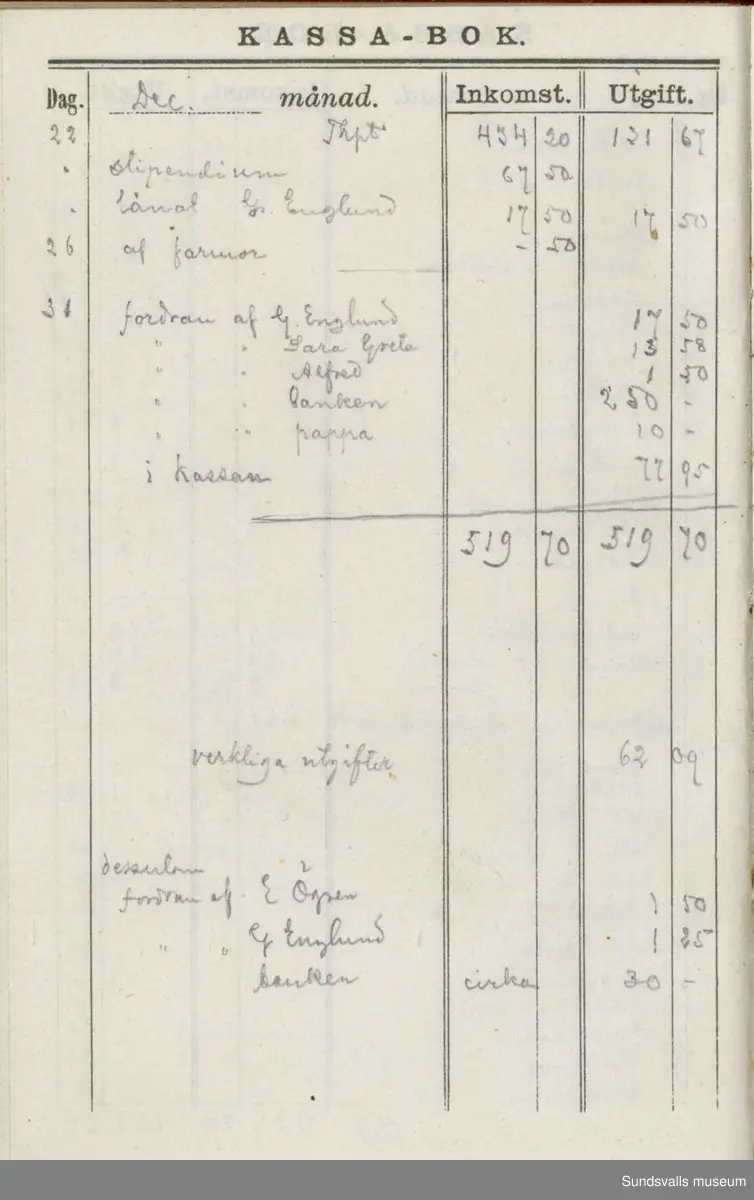 KASSA-BOK.
Dag. Dec. månad. Inkomst. Utgift.
22 Thpt 434 20 131 67
" stipendium 67 50
" lånat G. Englund 17 50 17 50
26 af farmor - 50
31 fordran af G. Englund 17 50
" " Sara Greta 13 58
" " Alfred 1 50
" " banken 250 -
" " pappa 10 -
i kassan 77 95
519 70 519 70
verkliga utgifter 62 09
dessutom
fordran af E Ögren 1 50
" " G Englund 1 25
banken cirka 30 -
Sundsvalls museum